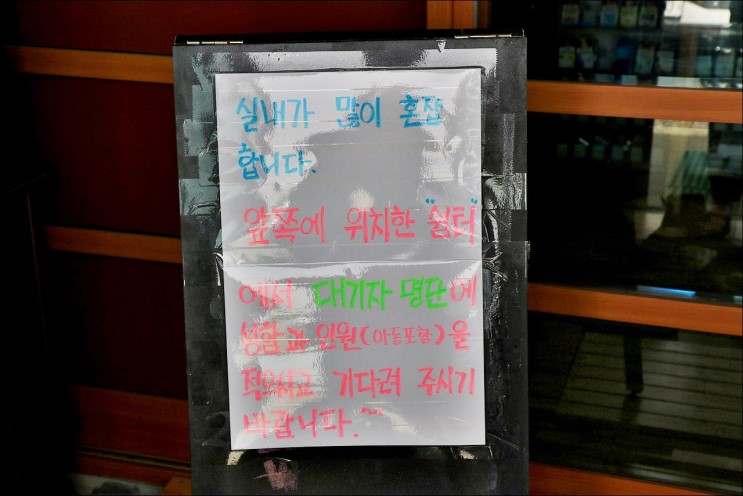 실내가 많이 혼잡
합니다.
앞쪽에 위치한 "쉼터"
에서 대기자 명단에
성함과 인원(아동포함)을
적으시고 기다려 주시기
바랍니다.^^